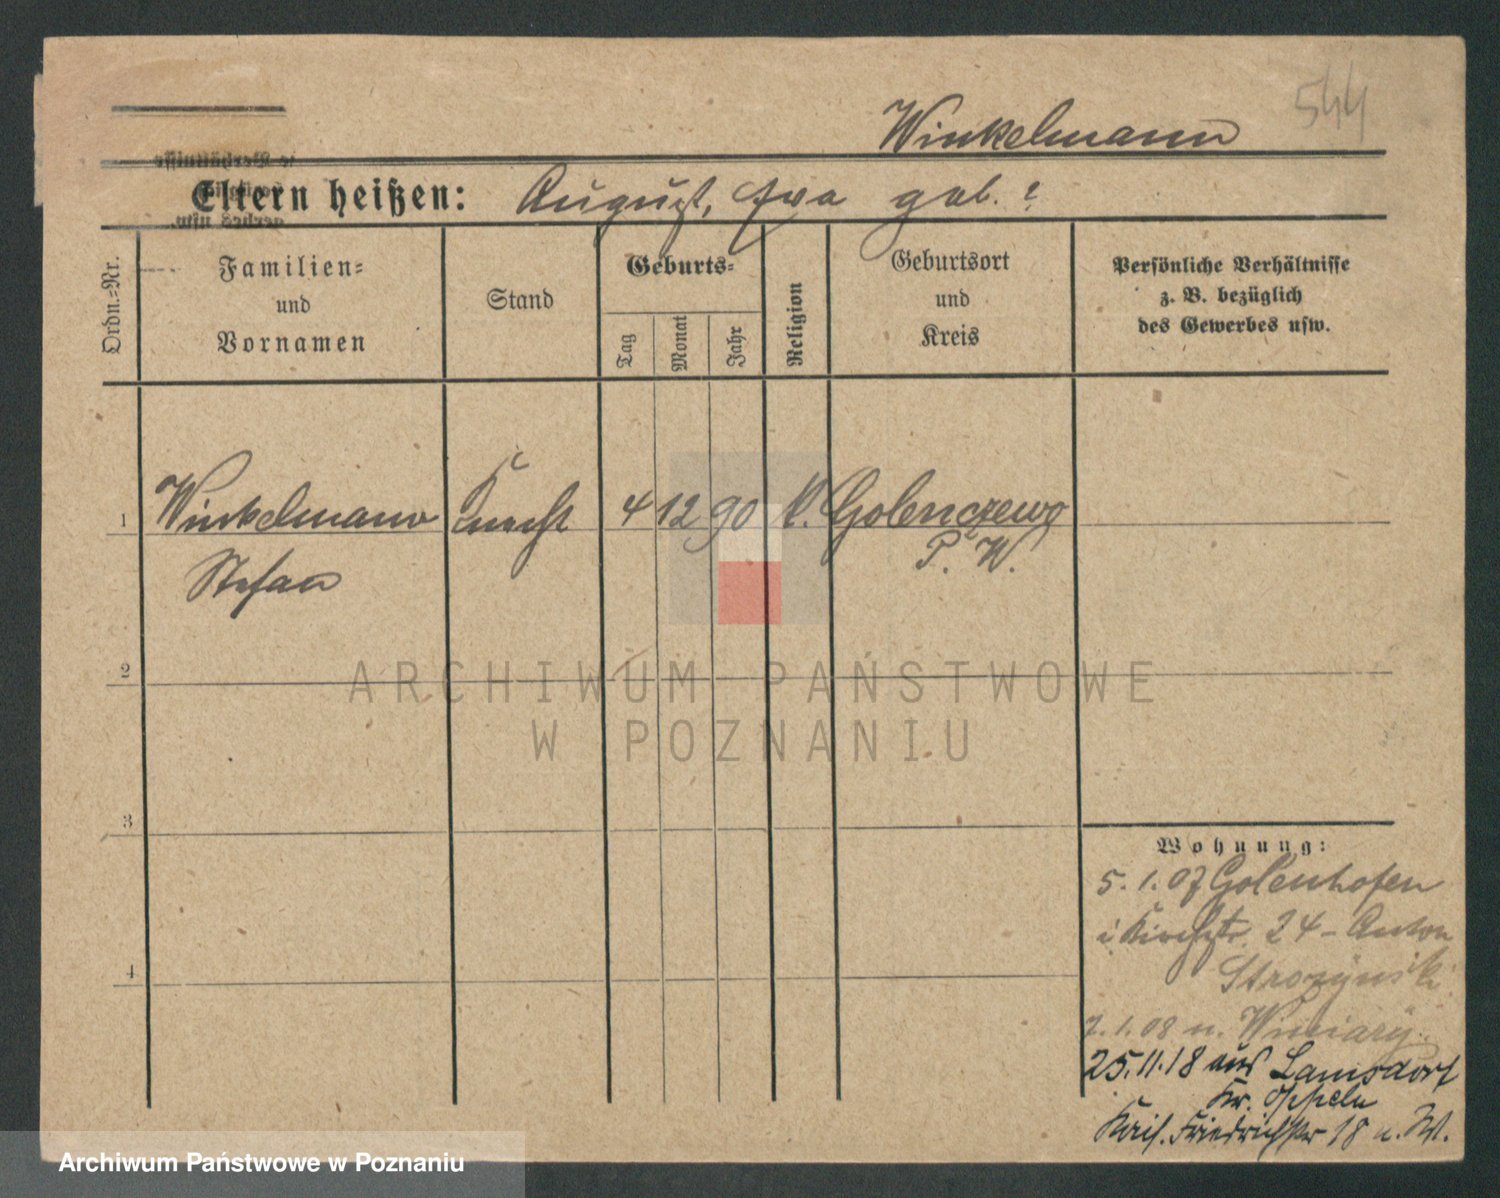 544
Winkelmann
Eltern heißen: August, Eva geb. ?
Ordn.=Nr.
Familien=
und
Vornamen
Stand
Geburts=
Tag
Monat
Jahr
Religion
Geburtsort
und
Kreis
Persönliche Verhältnisse
z. B. bezüglich
des Gewerbes usw.
1 Winkelmann Knecht 4 12 90 k. Golenczewo
Stefan P. W.
2
ARCHIWUM PAŃSTWOWE
W POZNANIU
3
Wohnung:
5. 1. 07 Golenhofen
Kirchstr. 24 - Anton
Strozynski
7. 1. 08 n. Winiary.
4
25.11.18 aus Lamsdorf
Kr. Oppeln
Kais. Friedrichstr 18 u. W.
Archiwum Państwowe w Poznaniu